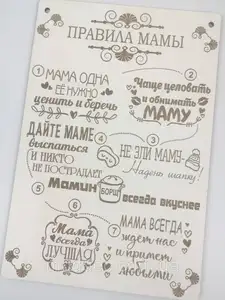 ПРАВИЛА МАМЫ
1
МАМА ОДНА
ЕЁ НУЖНО
ценить и беречь
2
Чаще целовать
и обнимать
МАМУ
3
ДАЙТЕ МАМЕ
выспаться
И НИКТО
НЕ ПОСТРАДАЕТ
4
НЕ ЗЛИ МАМУ-
Надень шапку!
5
Мамин
БОРЩ
всегда вкуснее
6
Мама
всегда
ЛУЧШАЯ
7
МАМА ВСЕГДА
ждет нас
и примет
любыми